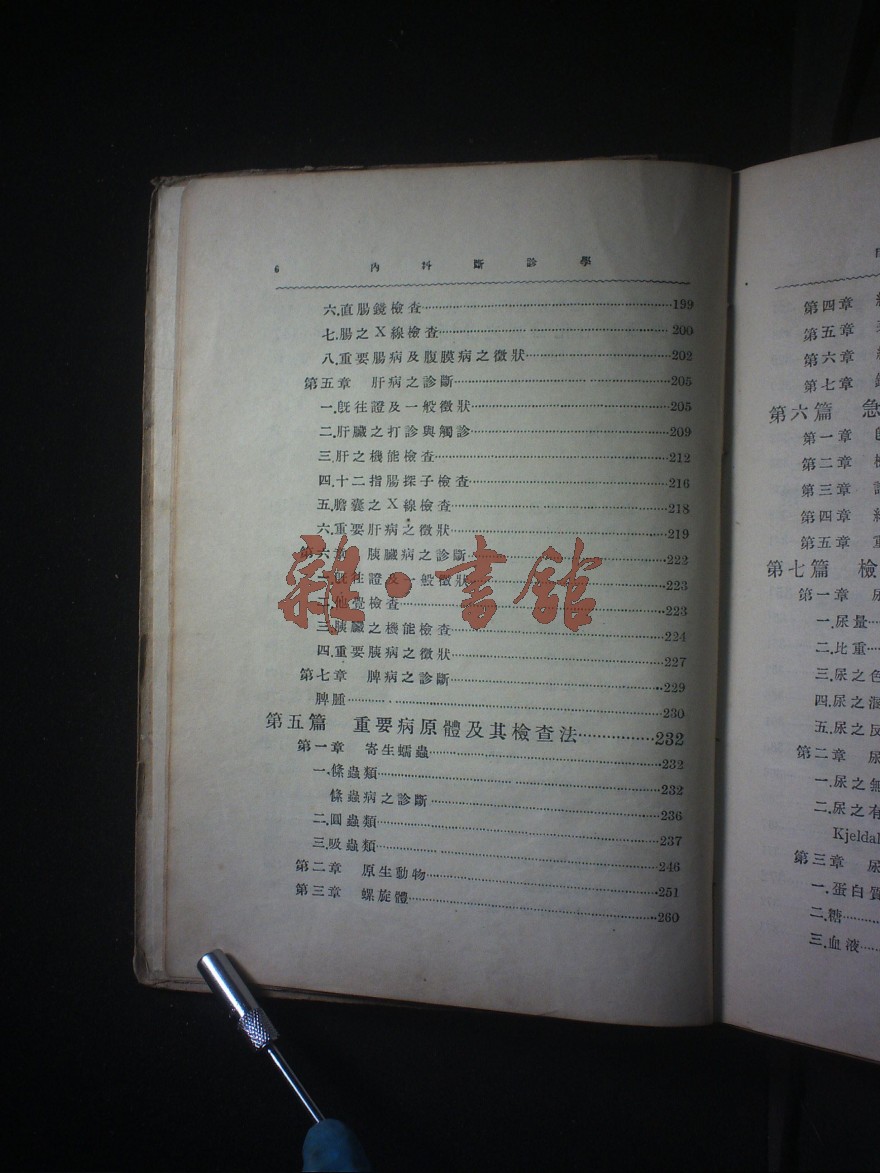 6 內科斷診學
六.直腸鏡檢查 199
七.腸之X線檢查 200
八.重要腸病及腹膜病之徵狀 202
第五章 肝病之診斷 205
一.旣往證及一般徵狀 205
二.肝臟之打診與觸診 209
三.肝之機能檢查 212
四.十二指腸探子檢查 216
五.膽囊之X線檢查 218
六.重要肝病之徵狀 219
第六章 胰臟病之診斷 222
一.旣往證及一般徵狀 223
二.他覺檢查 223
三.胰臟之機能檢查 224
四.重要胰病之徵狀 227
第七章 脾病之診斷 229
脾腫 230
第五篇 重要病原體及其檢查法 232
第一章 寄生蠕蟲 232
一.條蟲類 232
條蟲病之診斷 236
二.圓蟲類 237
三.吸蟲類 246
第二章 原生動物 251
第三章 螺旋體 260
雜·書館
第四章
第五章
第六章
第七章
第六篇 急
第一章
第二章
第三章
第四章
第五章
第七篇 檢
第一章
一.尿量
二.比重
三.尿之色
四.尿之
五.尿之反
第二章 尿
一.尿之無
二.尿之有
Kjeldal
第三章 尿
一.蛋白質
二.糖
三.血液